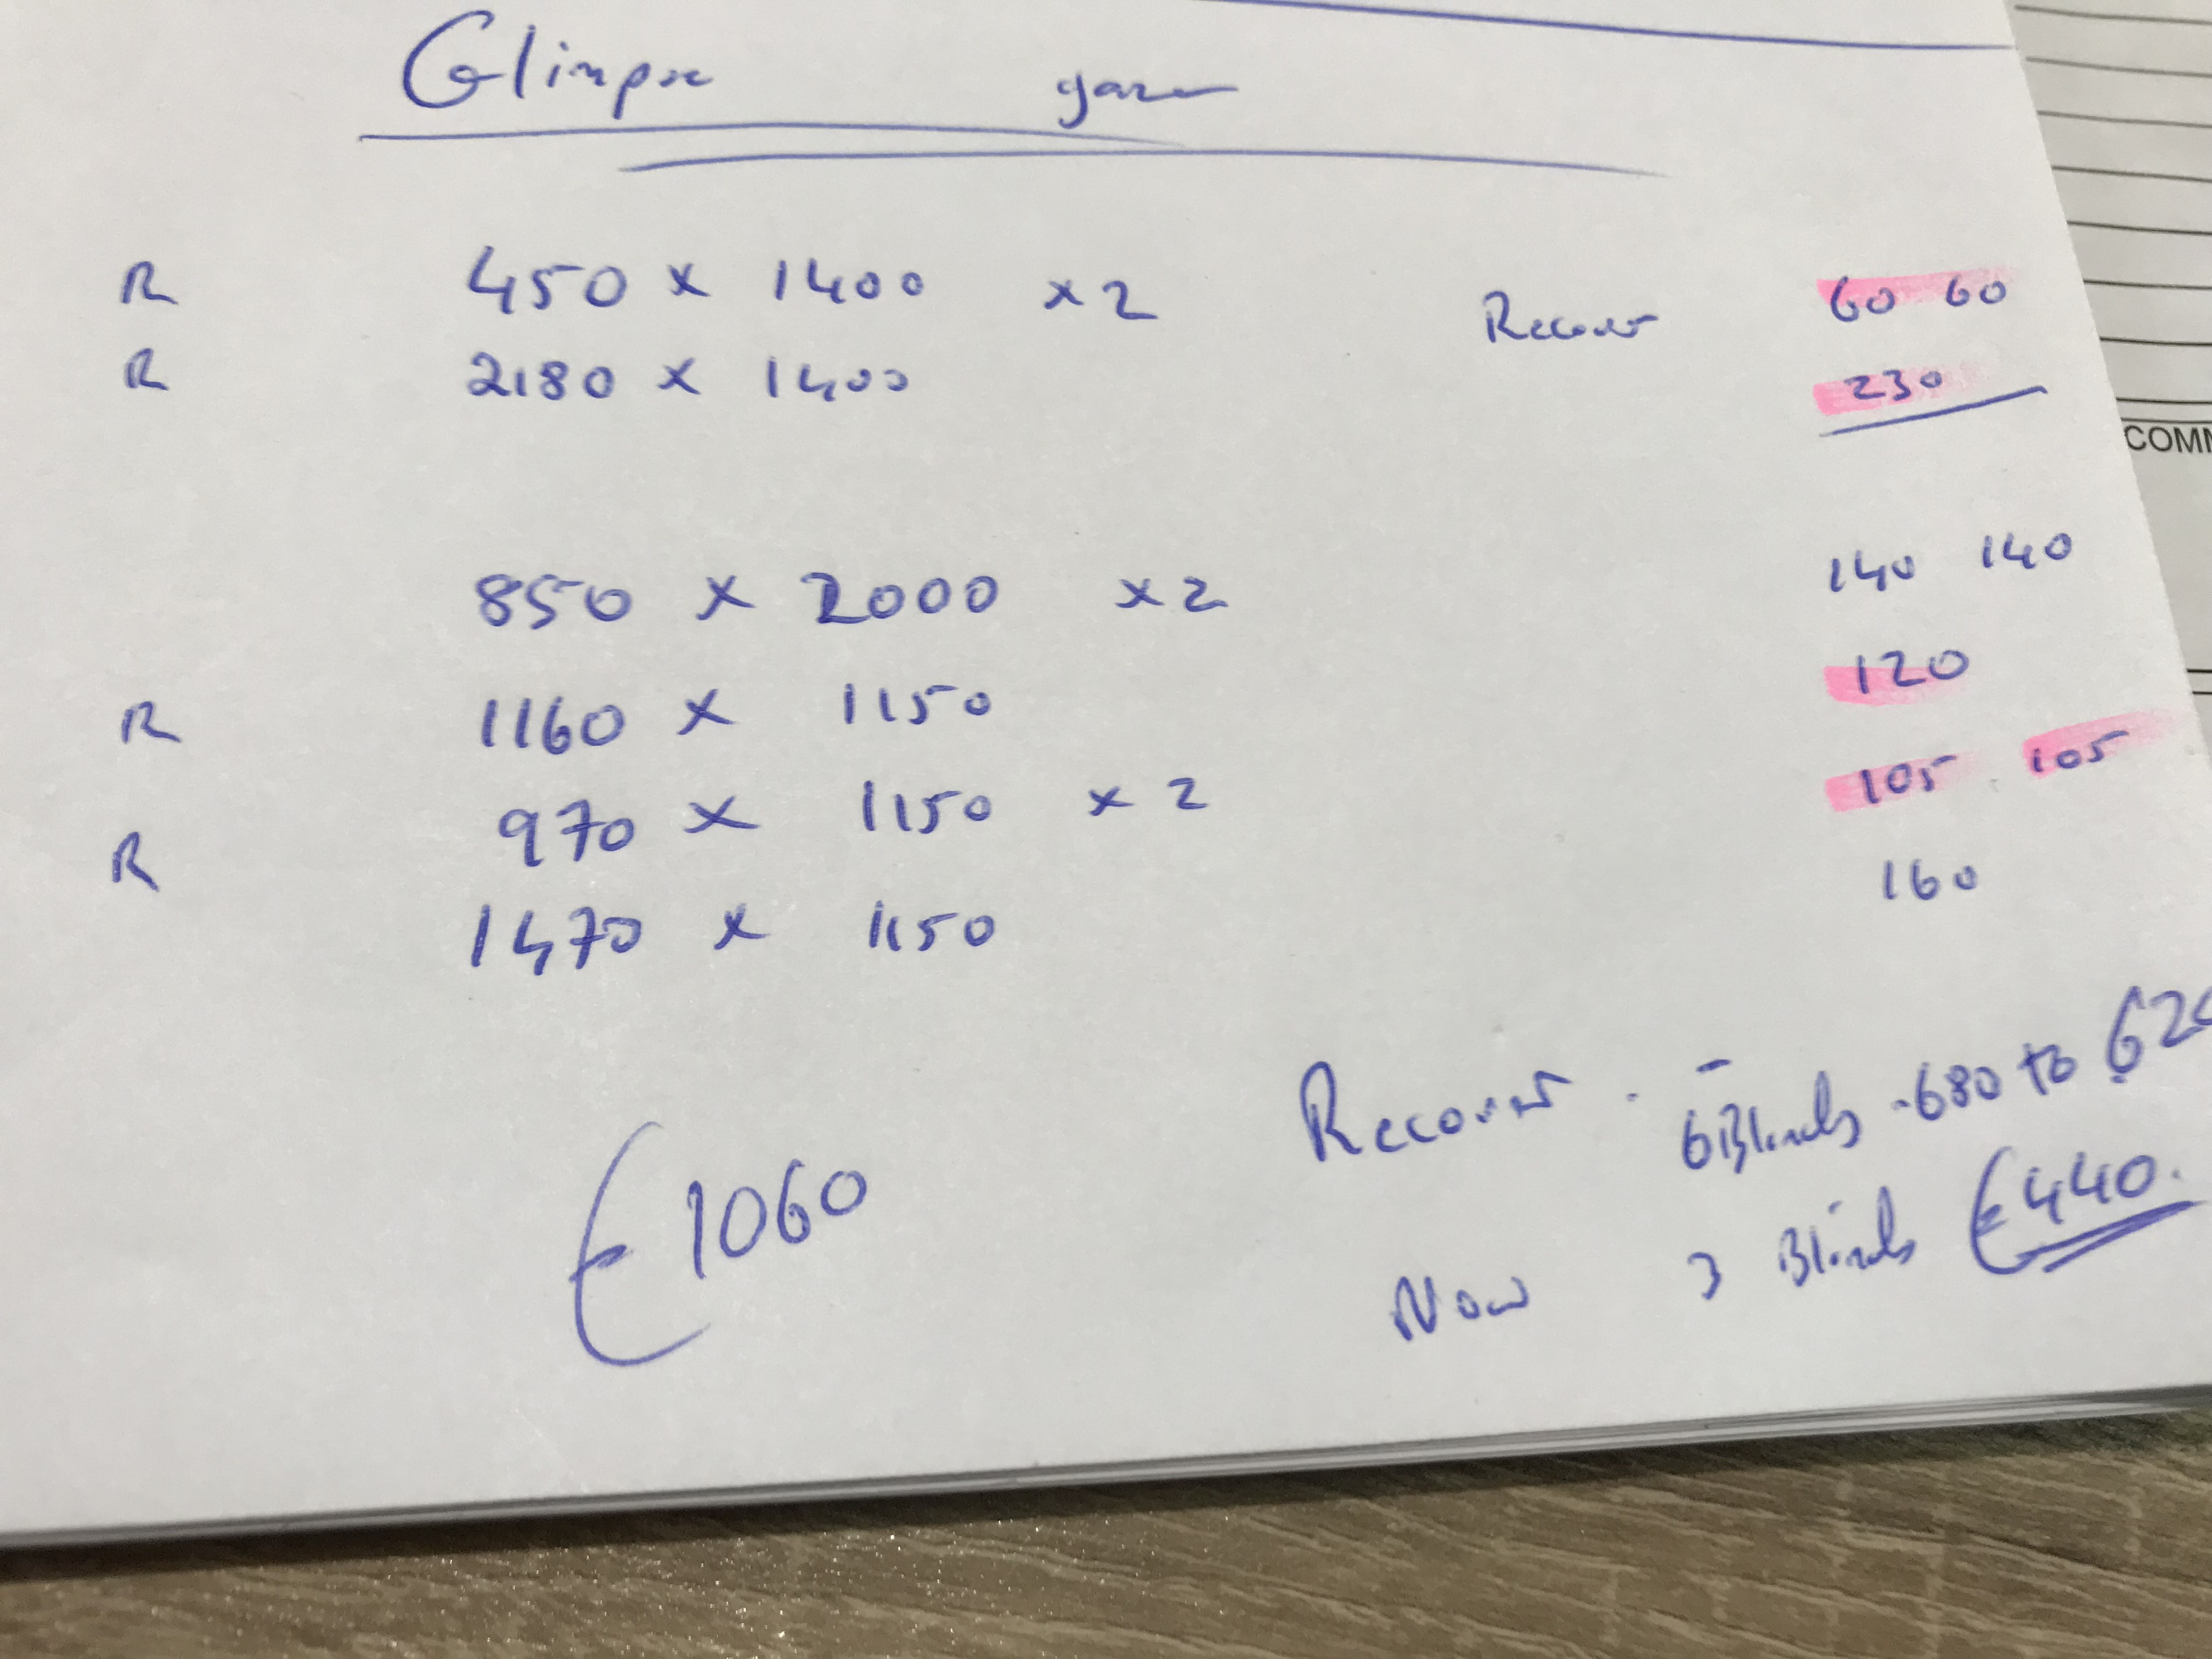 Glimpse gaze
R 450 x 1400 x 2 Recover 60 60
R 2180 x 1400 230
850 x 2000 x 2 140 140
R 1160 x 1150 120
R 970 x 1150 x 2 105 105
1470 x 1150 160
Recover - 6 Blinds - 680 to 620
€1060
Now 3 Blinds €440.
COMM